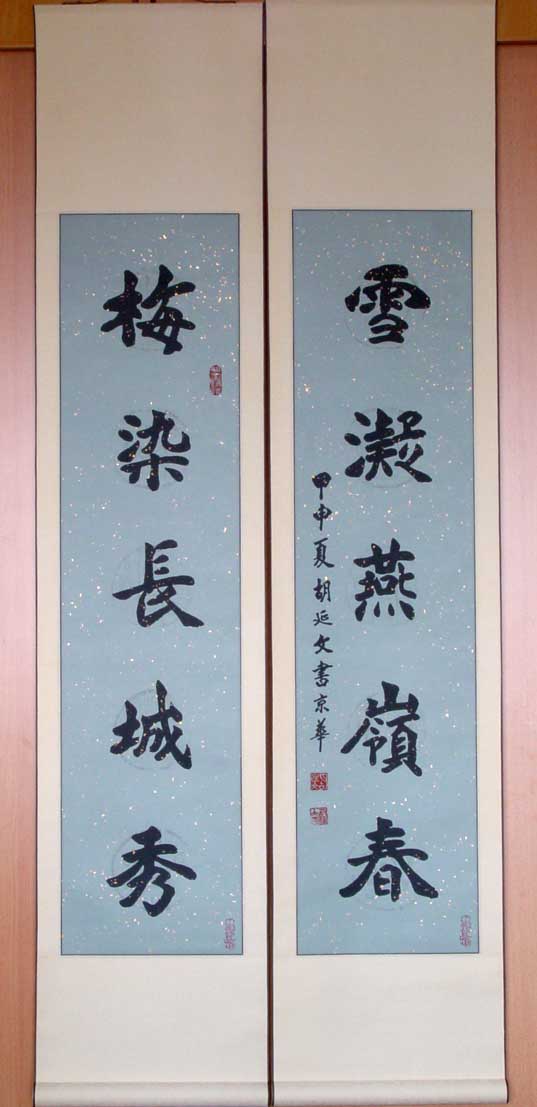 雪凝燕嶺春
甲申夏胡延文書京華
梅染長城秀